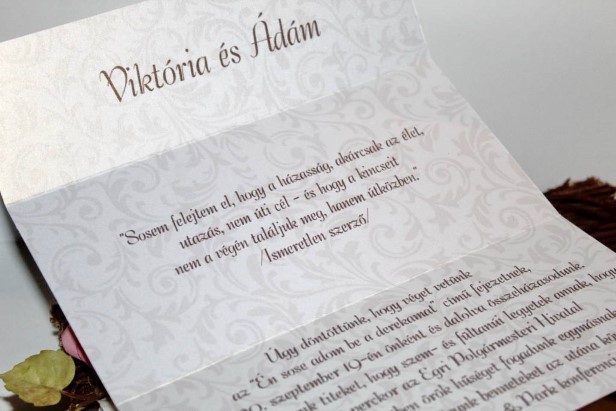 Viktória és Ádám
"Sosem felejtem el, hogy a házasság, akárcsak az élet,
utazás, nem úti cél - és hogy a kincseit
nem a végén találjuk meg, hanem útközben."
/Ismeretlen szerző/
Úgy döntöttünk, hogy véget vetünk
az "Én sose adom be a derekamat" című fejezetnek,
szeptember 19-én önként és dalolva összeházasodunk.
titeket, hogy szem- és fültanúi legyetek annak, hogy
perckor az Egri Polgármesteri Hivatal
örök hűséget fogadunk egymásnak
benneteket az utána
Park